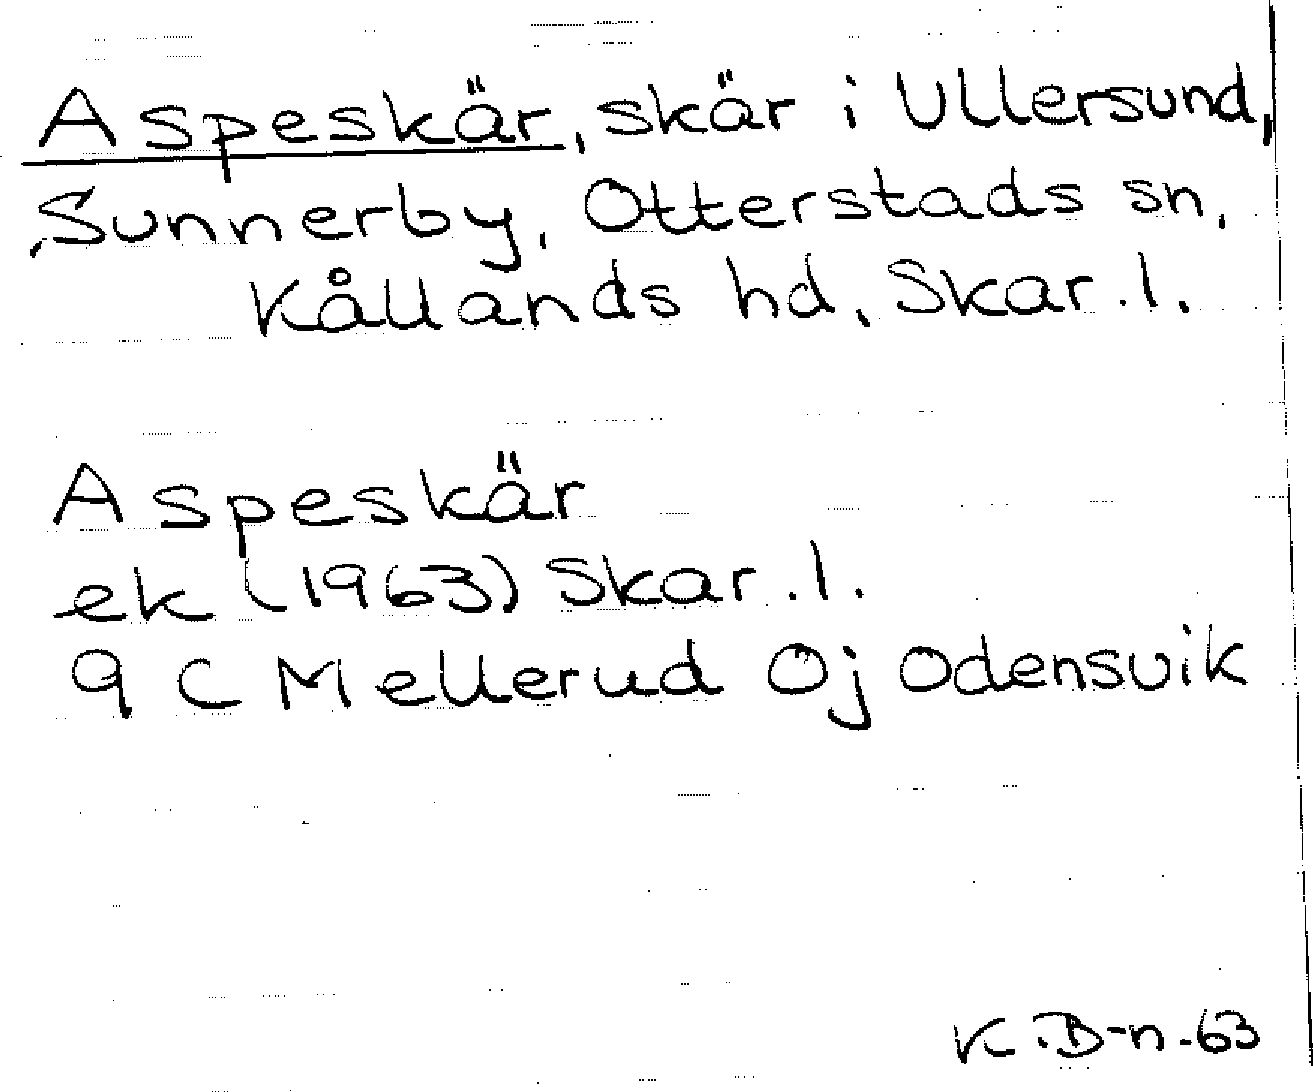 Aspeskär, skär i Ullersund,
Sunnerby, Otterstads sn,
Kållands hd, Skar. l.
Aspeskär
ek (1963) Skar. l.
9 C Mellerud Oj Odensvik
K. B-n. 63